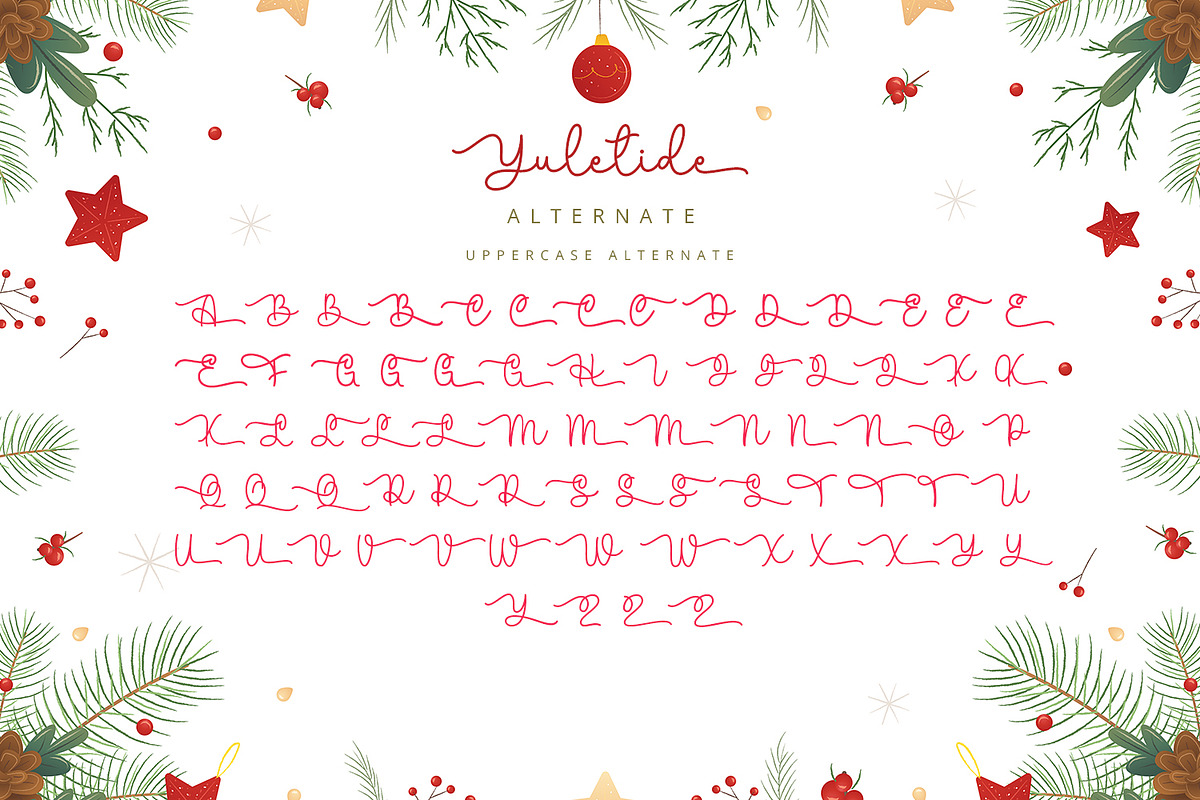 Yuletide
ALTERNATE
UPPERCASE ALTERNATE
A B B B C C C C D D D E E E
E F G G G G H I J J J J K K
K L L L L M M M N N N O P
Q Q Q R R R S S S S T T T U
U U V V V W W W X X X Y Y
Y Z Z Z